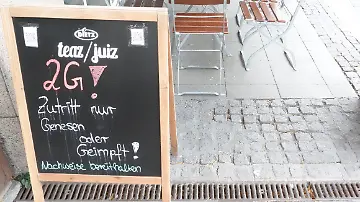 DIETZ
teaz/juiz
2G!
Zutritt nur
Genesen
oder
Geimpft!
Nachweise bereithalten